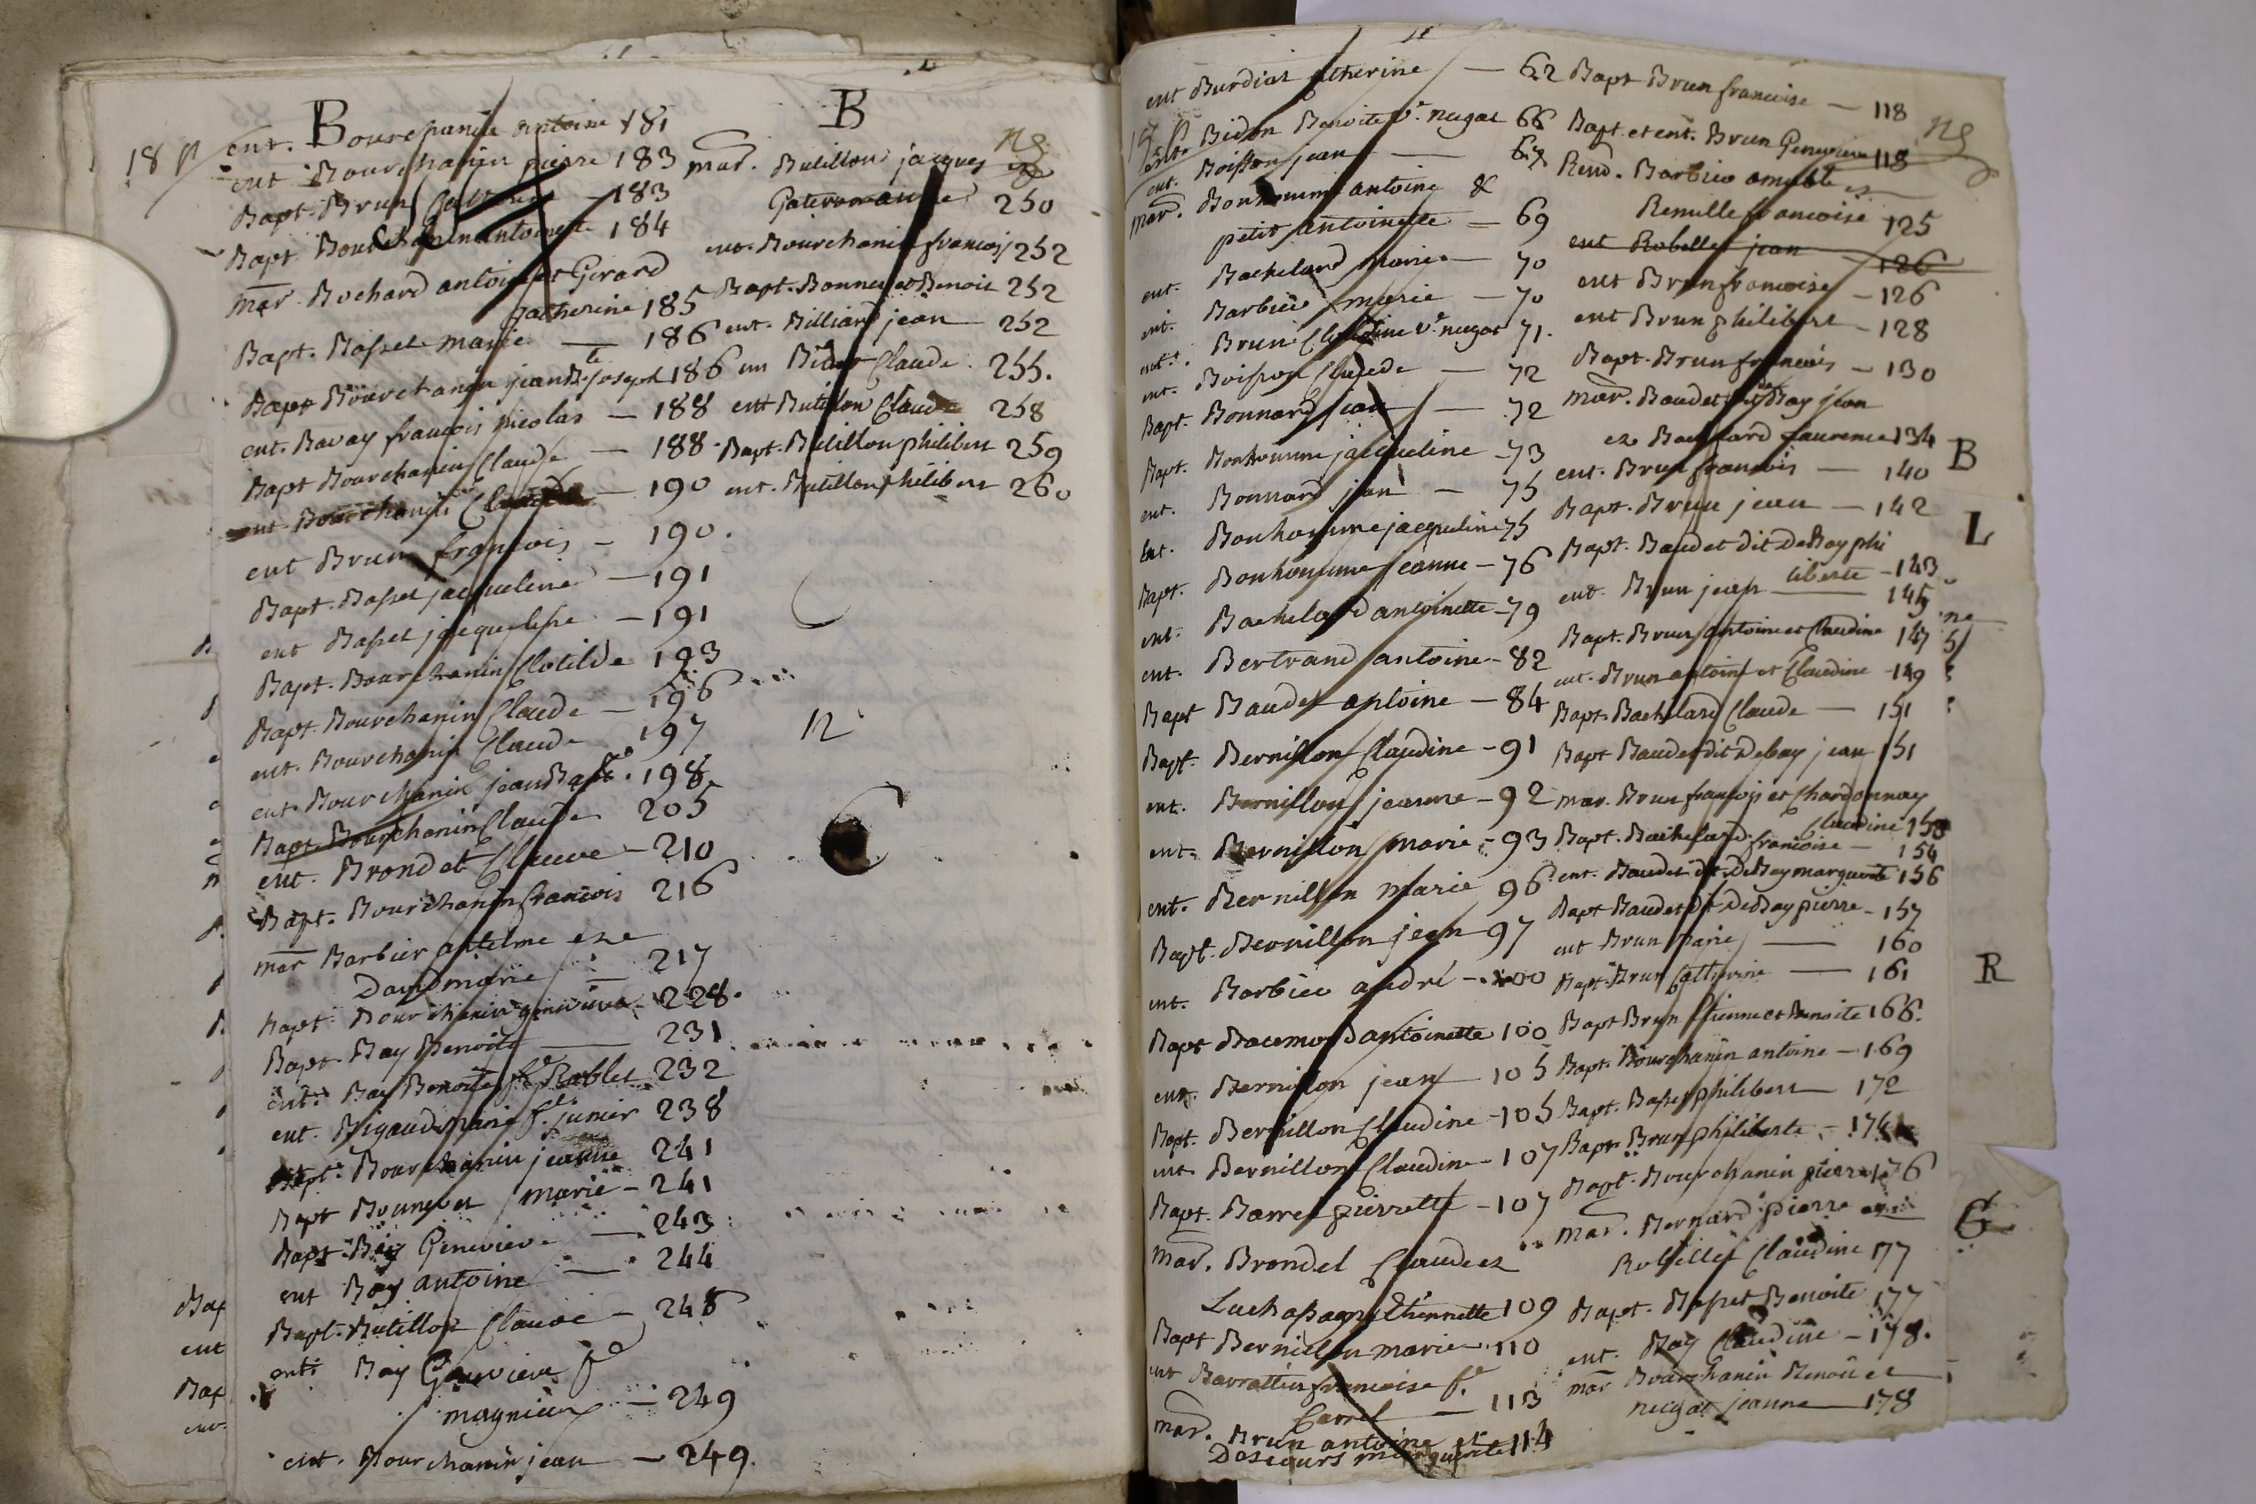 B
18 p
ent. Bourchanin antoine 181
ent Bourchanin pierre 183
Bapt. Brun - 183
Bapt. Bourchanin antoinette 184
mar. Bochard antoine et Girard
Catherine 185
Bapt. Basset marie — 186
Bapt Bourchanin jean Bte joseph 186
ent. Bavay francois nicolas — 188
Bapt Bourchanin Claude — 188
ent Bourchanin — 190
ent Brun francois — 190.
Bapt. Basset jacqueline — 191
ent Basset jacqueline — 191
Bapt. Bourchanin Clotilde 193
Bapt. Bourchanin Claude — 196
ent. Bourchanin Claude 197
ent. Bourchanin jean Bapte. 198
Bapt. Bourchanin Claude 205
ent. Brondet Claude — 210
Bapt. Bourchanin francois 216
mar Barbier antelme
David marie — 217
Bapt. Bourchanin genevieve — 228.
Bapt. Bay Benoite — 231
ent. Bay Benoite fe Rablet 232
ent. Bigaud marie fe junier 238
Bapt. Bourchanin jeanne 241
Bapt Bonnevet marie — 241
Bapt. Bay Genevieve — 243
ent Bay antoine — 244
Bapt. Butillon Claude — 248
ent. Bay Genevieve fe
magnien — 249
ent. Bourchanin jean — 249.
B
mar. Butillon jacques
250
ent. Bourchanin francois 252
Bapt. Bonnevet Benoit 252
ent. Billiard jean 252
Claude 255.
ent Butillon Claude 258
Bapt. Butillon philibert 259
ent. Butillon philibert 260
12
ent Burdiat Catherine — 62
ent. Bidon Benoite Ve. nugat 66
ent. Boisson jean — 67
mar. Bonhomme antoine &
petit antoinette — 69
ent. Bachelard marie — 70
ent. Barbier marie — 70
ent. Brun Claudine Ve. nugat 71.
ent. Boisson Claude — 72
Bapt. Bonnard jean — 72
Bapt. Bonhomme jacqueline — 73
ent. Bonnard jean — 75
Ent. Bonhomme jacqueline 75
Bapt. Bonhomme jeanne — 76
ent. Bachelard antoinette — 79
ent. Bertrand antoine — 82
Bapt Baudet antoine — 84
Bapt. Bernillon Claudine — 91
ent. Bernillon jeanne — 92
ent. Bernillon marie — 93
ent. Bernillon marie 96
Bapt. Bernillon jean — 97
ent. Barbier andré — 100
Bapt Bacemond antoinette 100
ent. Bernillon jean 105
Bapt. Bernillon Claudine — 105
ent. Bernillon Claudine — 107
Bapt. Barret pierrette — 107
mar. Brondel Claude et
Etiennette 109
Bapt Bernillon marie 110
ent francoise fe.
Carrel — 113
mar. Brun antoine et
Descours marguerite 114
Bapt Brun francoise — 118
Bapt. et ent. Brun Genevieve 118
Rend. Barbier amable et
Renulle francoise 125
ent Robellet jean 126
ent Brun francoise — 126
ent Brun philibert — 128
Bapt. Brun francois — 130
mar. Baudet dit DeBay jean
et Bachelard Laurence 134
ent. Brun francois — 140
Bapt. Brun jean — 142
Bapt. Baudet dit DeBay phi
liberte — 143
ent. Brun jean — 145
Bapt. Brun antoine et Claudine 147
ent. Brun antoine et Claudine — 149
Bapt. Bachelard Claude — 151
Bapt Baudet dit Debay jean 151
mar. Brun francois et Chardonnay
Claudine 153
Bapt. Bachelard francoise — 154
ent. Baudet dit DeBay marguerite 156
Bapt Baudet dit DeBay pierre — 157
ent Brun marie — 160
Bapt. Brun Catherine — 161
Bapt Brun Etienne et Benoite 166.
Bapt. Bourchanin antoine — 169
Bapt. Basset philibert — 172
Bapt. Brun philiberte — 174
Bapt. Bourchanin pierre 176
mar. Bernard pierre
Robillet Claudine 177
Bapt. Basset Benoite 177
ent. Bay Claudine — 178.
mar Bourchanin Benoit et
nugat jeanne — 178
B
L
R
G